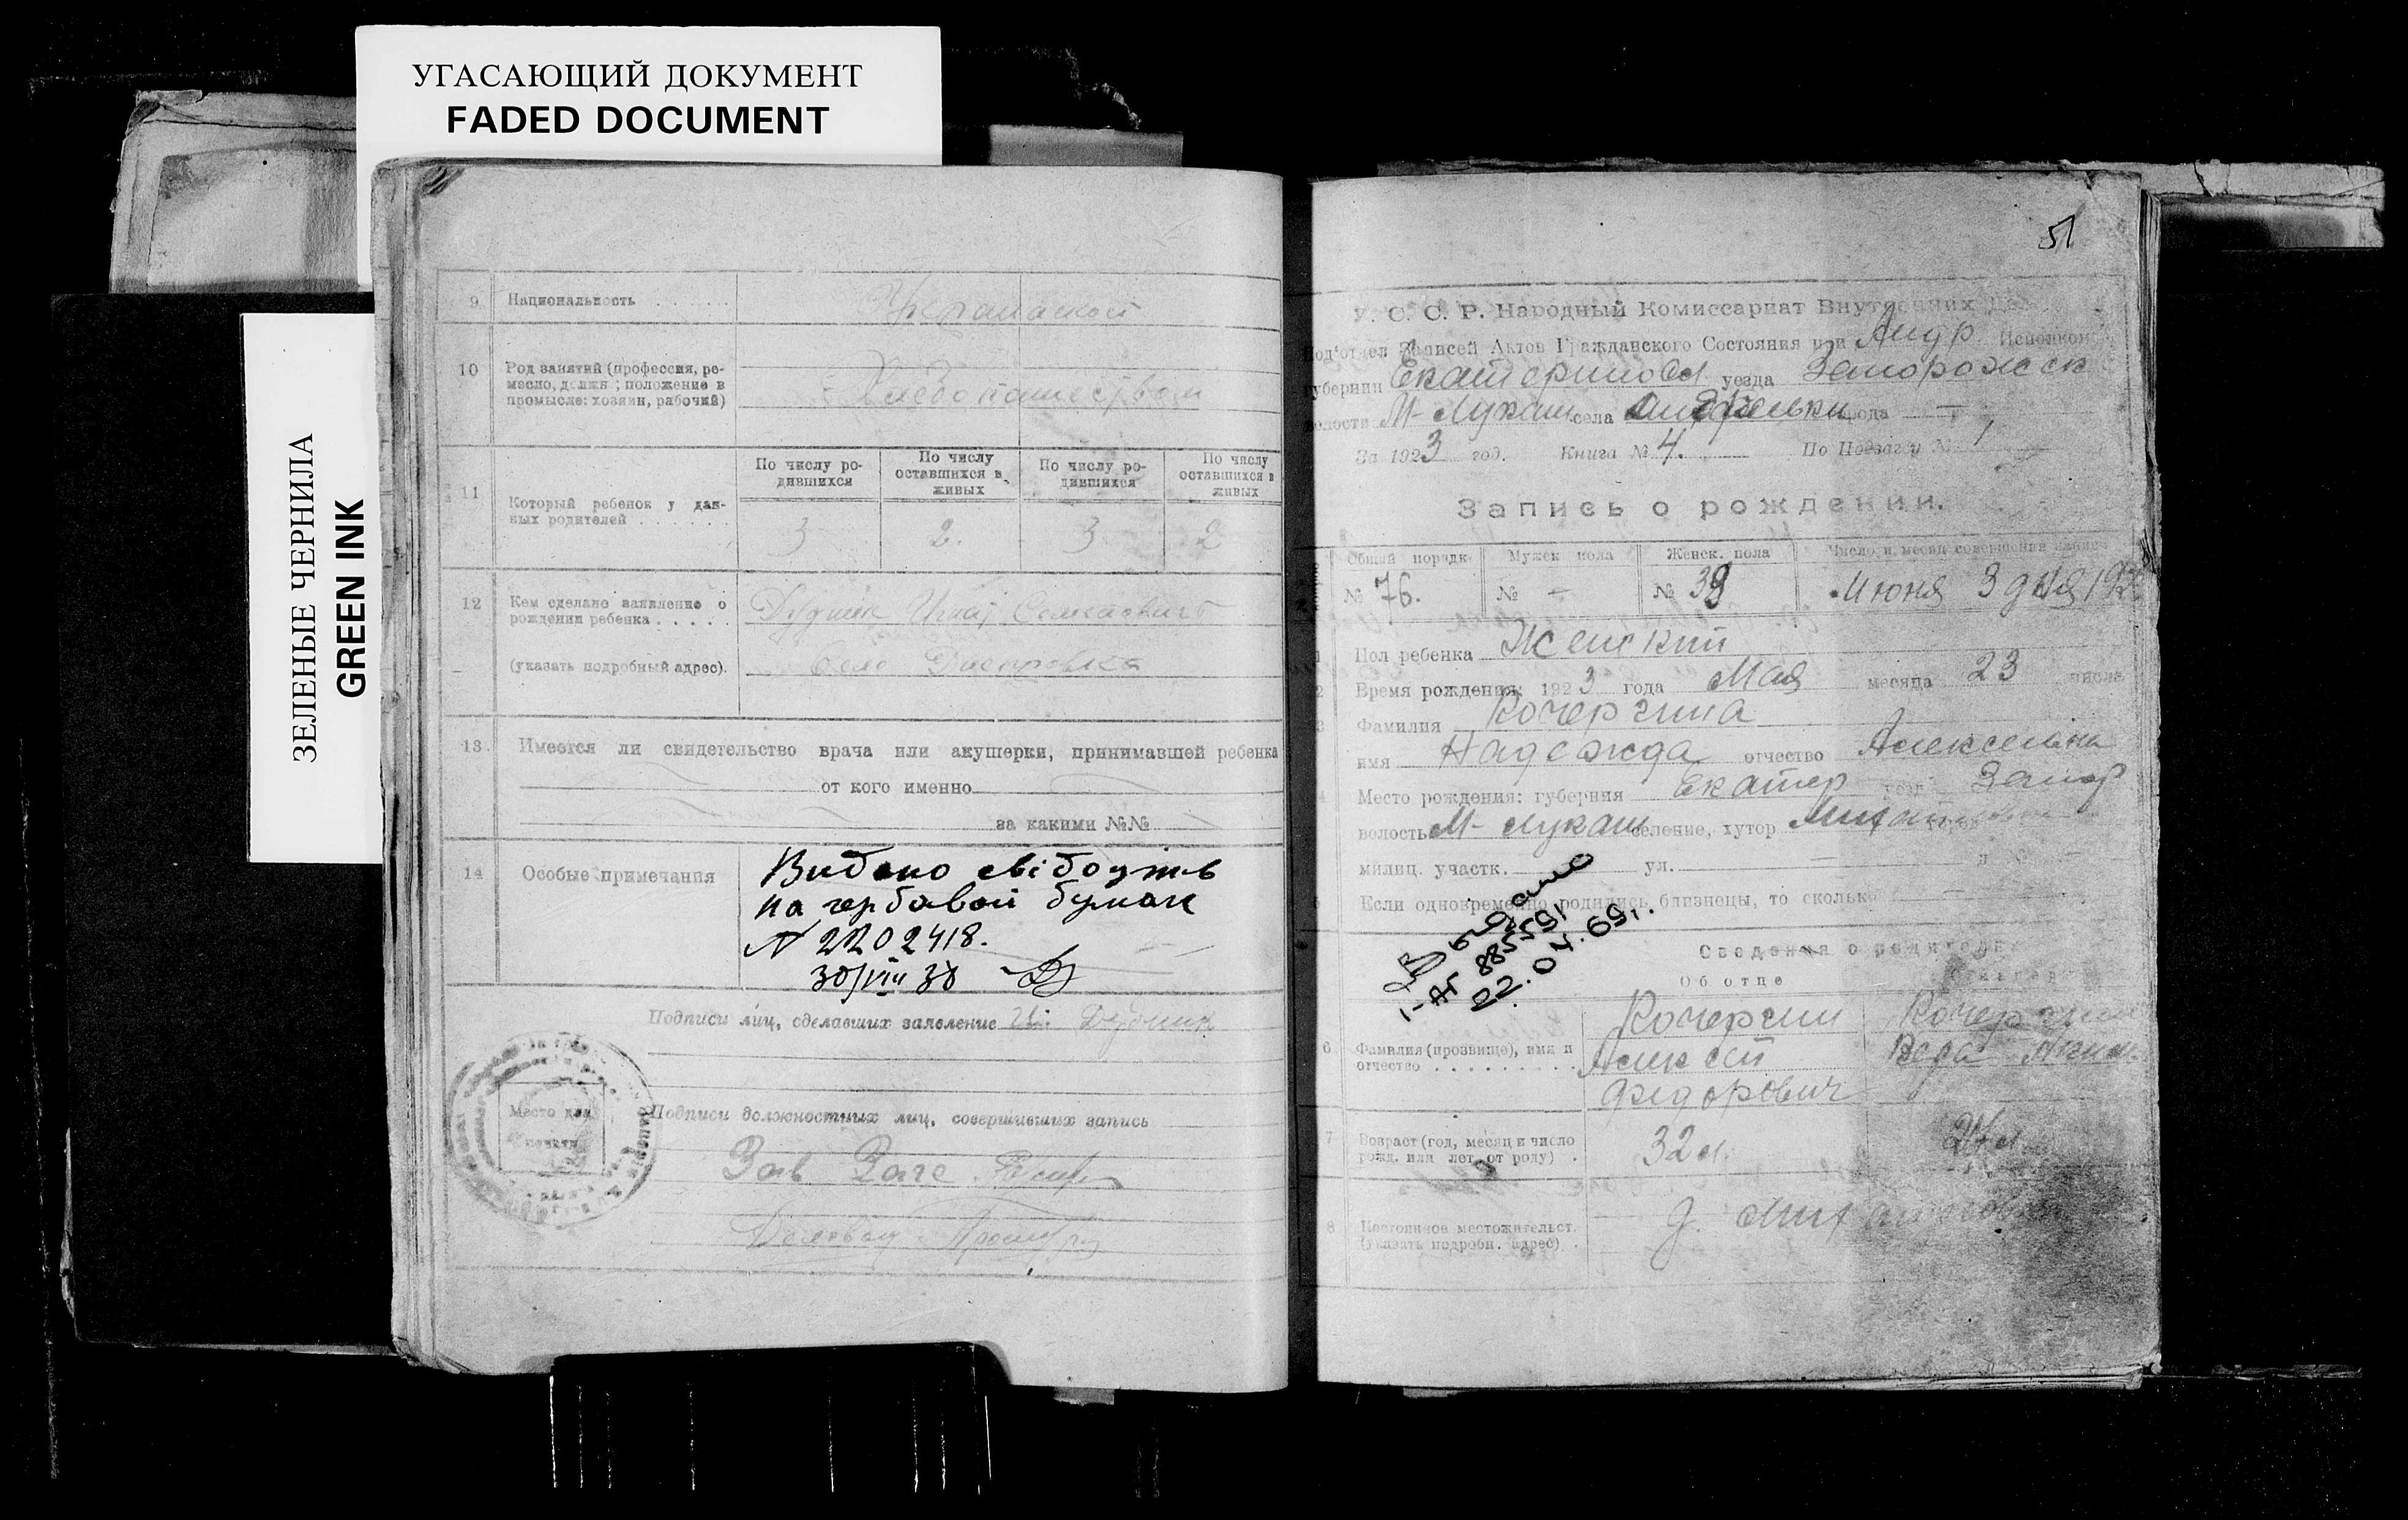 УГАСАЮЩИЙ ДОКУМЕНТ
FADED DOCUMENT
ЗЕЛЕНЫЕ ЧЕРНИЛА
GREEN INK
9 Национальность . . . . . .
10 Род занятий (профессия, ре-
месло, должн.; положение в
промысле: хозяин, рабочий)
Хлебопашеством
11 Который ребенок у дан-
ных родителей . . . . . . .
По числу ро-
дившихся
По числу
оставшихся в
живых
По числу ро-
дившихся
По числу
оставшихся в
живых
3 2. 3 2
12 Кем сделано заявление о
рождении ребенка . . . . .
Дудник Семенович
(указать подробный адрес).
Село Днепровка
13. Имеется ли свидетельство врача или акушерки, принимавшей ребенка
от кого именно
за какими №№
14 Особые примечания
Видано свідоцтв
на гербовой бумаге
N 2202418.
30/VIII 38
Подписи лиц, сделавших заявление Дудник
Место для
печати
Подписи должностных лиц, совершивших запись
Зав Загс
51
У. С. С. Р. Народный Комиссариат Внутренних Дел
Под'отдел Записей Актов Гражданского Состояния при Андр. Исполком
губернии Екатериносл уезда Запорожск
волости М-Лукаш села города —
За 1923 год. Книга № 4. По Подзагсу № 1
Запись о рождении.
Общий порядк. Мужск пола Женск. пола Число и месяц совершения записи
№ 76. № — № 39 Июня 3 дня 192
1 Пол ребенка Женский
2 Время рождения: 1923 года Мая месяца 23 числа
3 Фамилия Кочергина
имя Надежда отчество Алексеевна
4 Место рождения: губерния Екатер уезд Запор
волость М-Лукаш селение, хутор
милиц. участк. ул. — д. —
5 Если одновременно родились близнецы, то сколько —
Выдано
I-АГ 885591
22.04.69г.
Сведения о родителях
Об отце О матери
6 Фамилия (прозвище), имя и
отчество . . . . . . . . .
Кочергин
Алексей
Федорович
Кочергин
Вера
7 Возраст (год, месяц и число
рожд. или лет от роду) .
32 л. 24 л
8 Постоянное местожительст.
(указать подробн. адрес) .